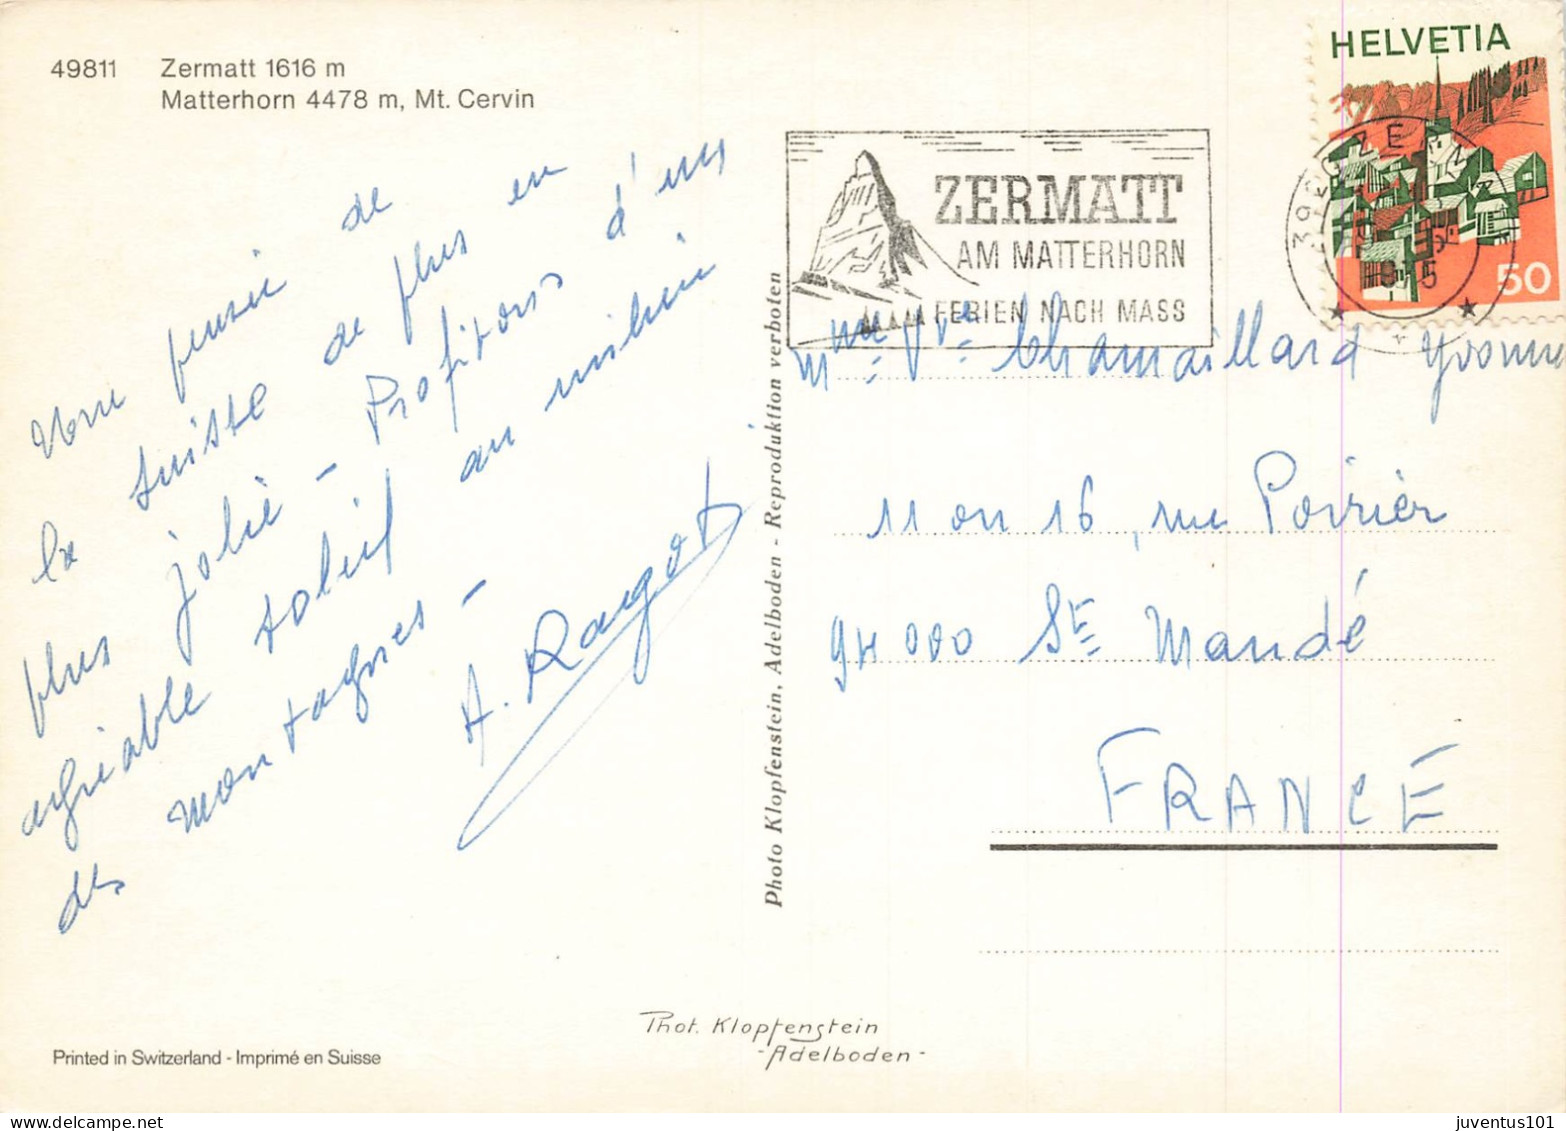 49811 Zermatt 1616 m
Matterhorn 4478 m, Mt. Cervin
HELVETIA
50
ZERMATT
AM MATTERHORN
FERIEN NACH MASS
Bonne pensée de
la Suisse de plus en
plus jolie - Profitons d'un
agréable soleil au milieu
des montagnes -
A. Ragot
Photo Klopfenstein, Adelboden - Reproduktion verboten
Mme Vve Chamaillard Yvonne
11 ou 16, rue Poirier
94000 St Mandé
FRANCE
Phot. Klopfenstein
- Adelboden -
Printed in Switzerland - Imprimé en Suisse
juventus101